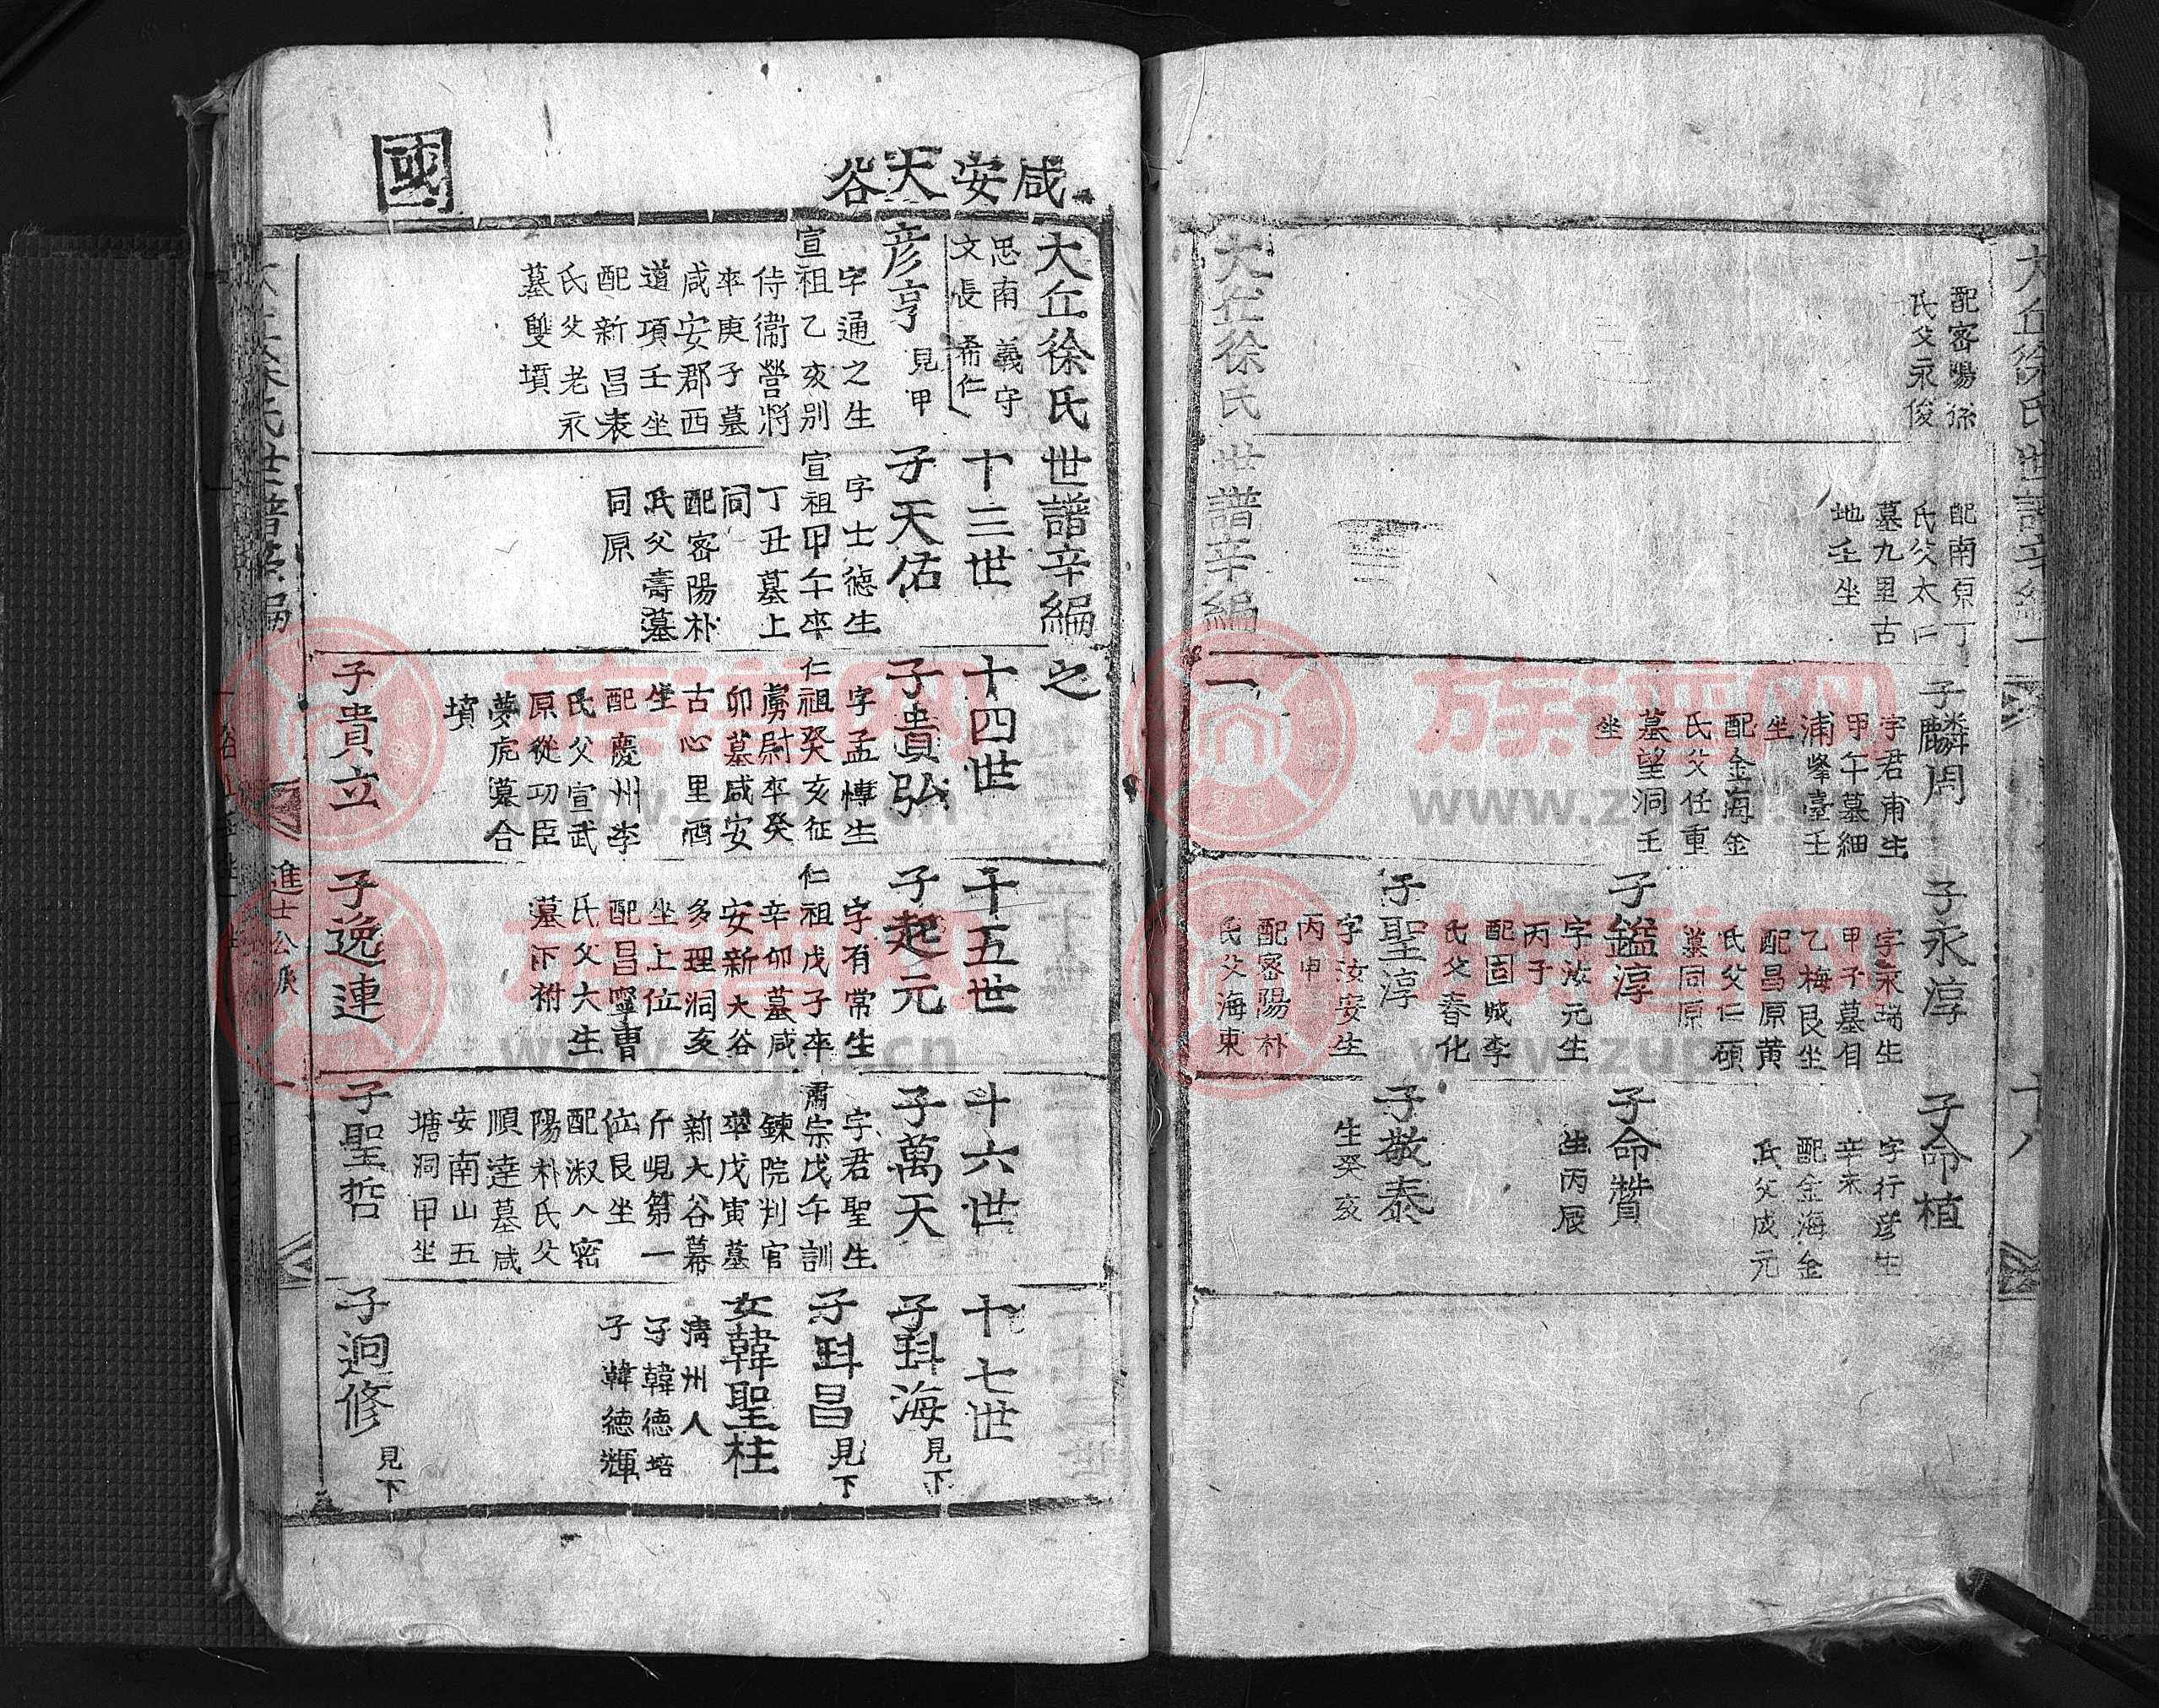 大丘徐氏世譜辛編
配密陽孫
氏父永俊
配南原丁
氏父太口
墓九里古
地壬坐
子麟周
字君甫生
甲午墓細
浦峰臺壬
坐
配金海金
氏父任重
墓望洞壬
坐
子永淳
字永瑞生
甲子墓自
乙梅艮坐
配昌原黄
氏父仁碩
墓同原
子鎰淳
字汝元生
丙子
配固城李
氏父春化
子聖淳
字汝安生
丙申
配密陽朴
氏父海東
子命植
字行彦生
辛未
配金海金
氏父成元
子命贊
生丙辰
子敬泰
生癸亥
大丘徐氏世譜辛編 一
咸安大谷
國
大丘徐氏世譜辛編之
思南 義守
文長 希仁
彦亨 見甲
字通之生
宣祖乙亥别
侍衛營將
卒庚子墓
咸安郡西
道項壬坐
配新昌表
氏父老永
墓雙墳
十三世
子天佑
字士德生
宣祖甲午卒
丁丑墓上
同
配密陽朴
氏父壽墓
同原
十四世
子貴弘
字孟博生
仁祖癸亥征
虜尉卒癸
卯墓咸安
古心里酉
坐
配慶州李
氏父宣武
原從功臣
夢虎墓合
墳
子貴立
十五世
子起元
字有常生
仁祖戊子卒
辛卯墓咸
安新大谷
多理洞亥
坐上位
配昌寧曹
氏父大生
墓下祔
子逸連
十六世
子萬天
字君聖生
肅宗戊午訓
鍊院判官
卒戊寅墓
新大谷幕
斤峴第一
位艮坐
配淑人密
陽朴氏父
順達墓咸
安南山五
塘洞甲坐
子聖哲
十七世
子㪷海 見下
子㪷昌 見下
女韓聖柱
淸州人
子韓德培
子韓德輝
子迥修 見下
進士公派
族譜网
www.zupu.cn
族譜网
www.zupu.cn
族譜网
www.zupu.cn
族譜网
www.zupu.cn